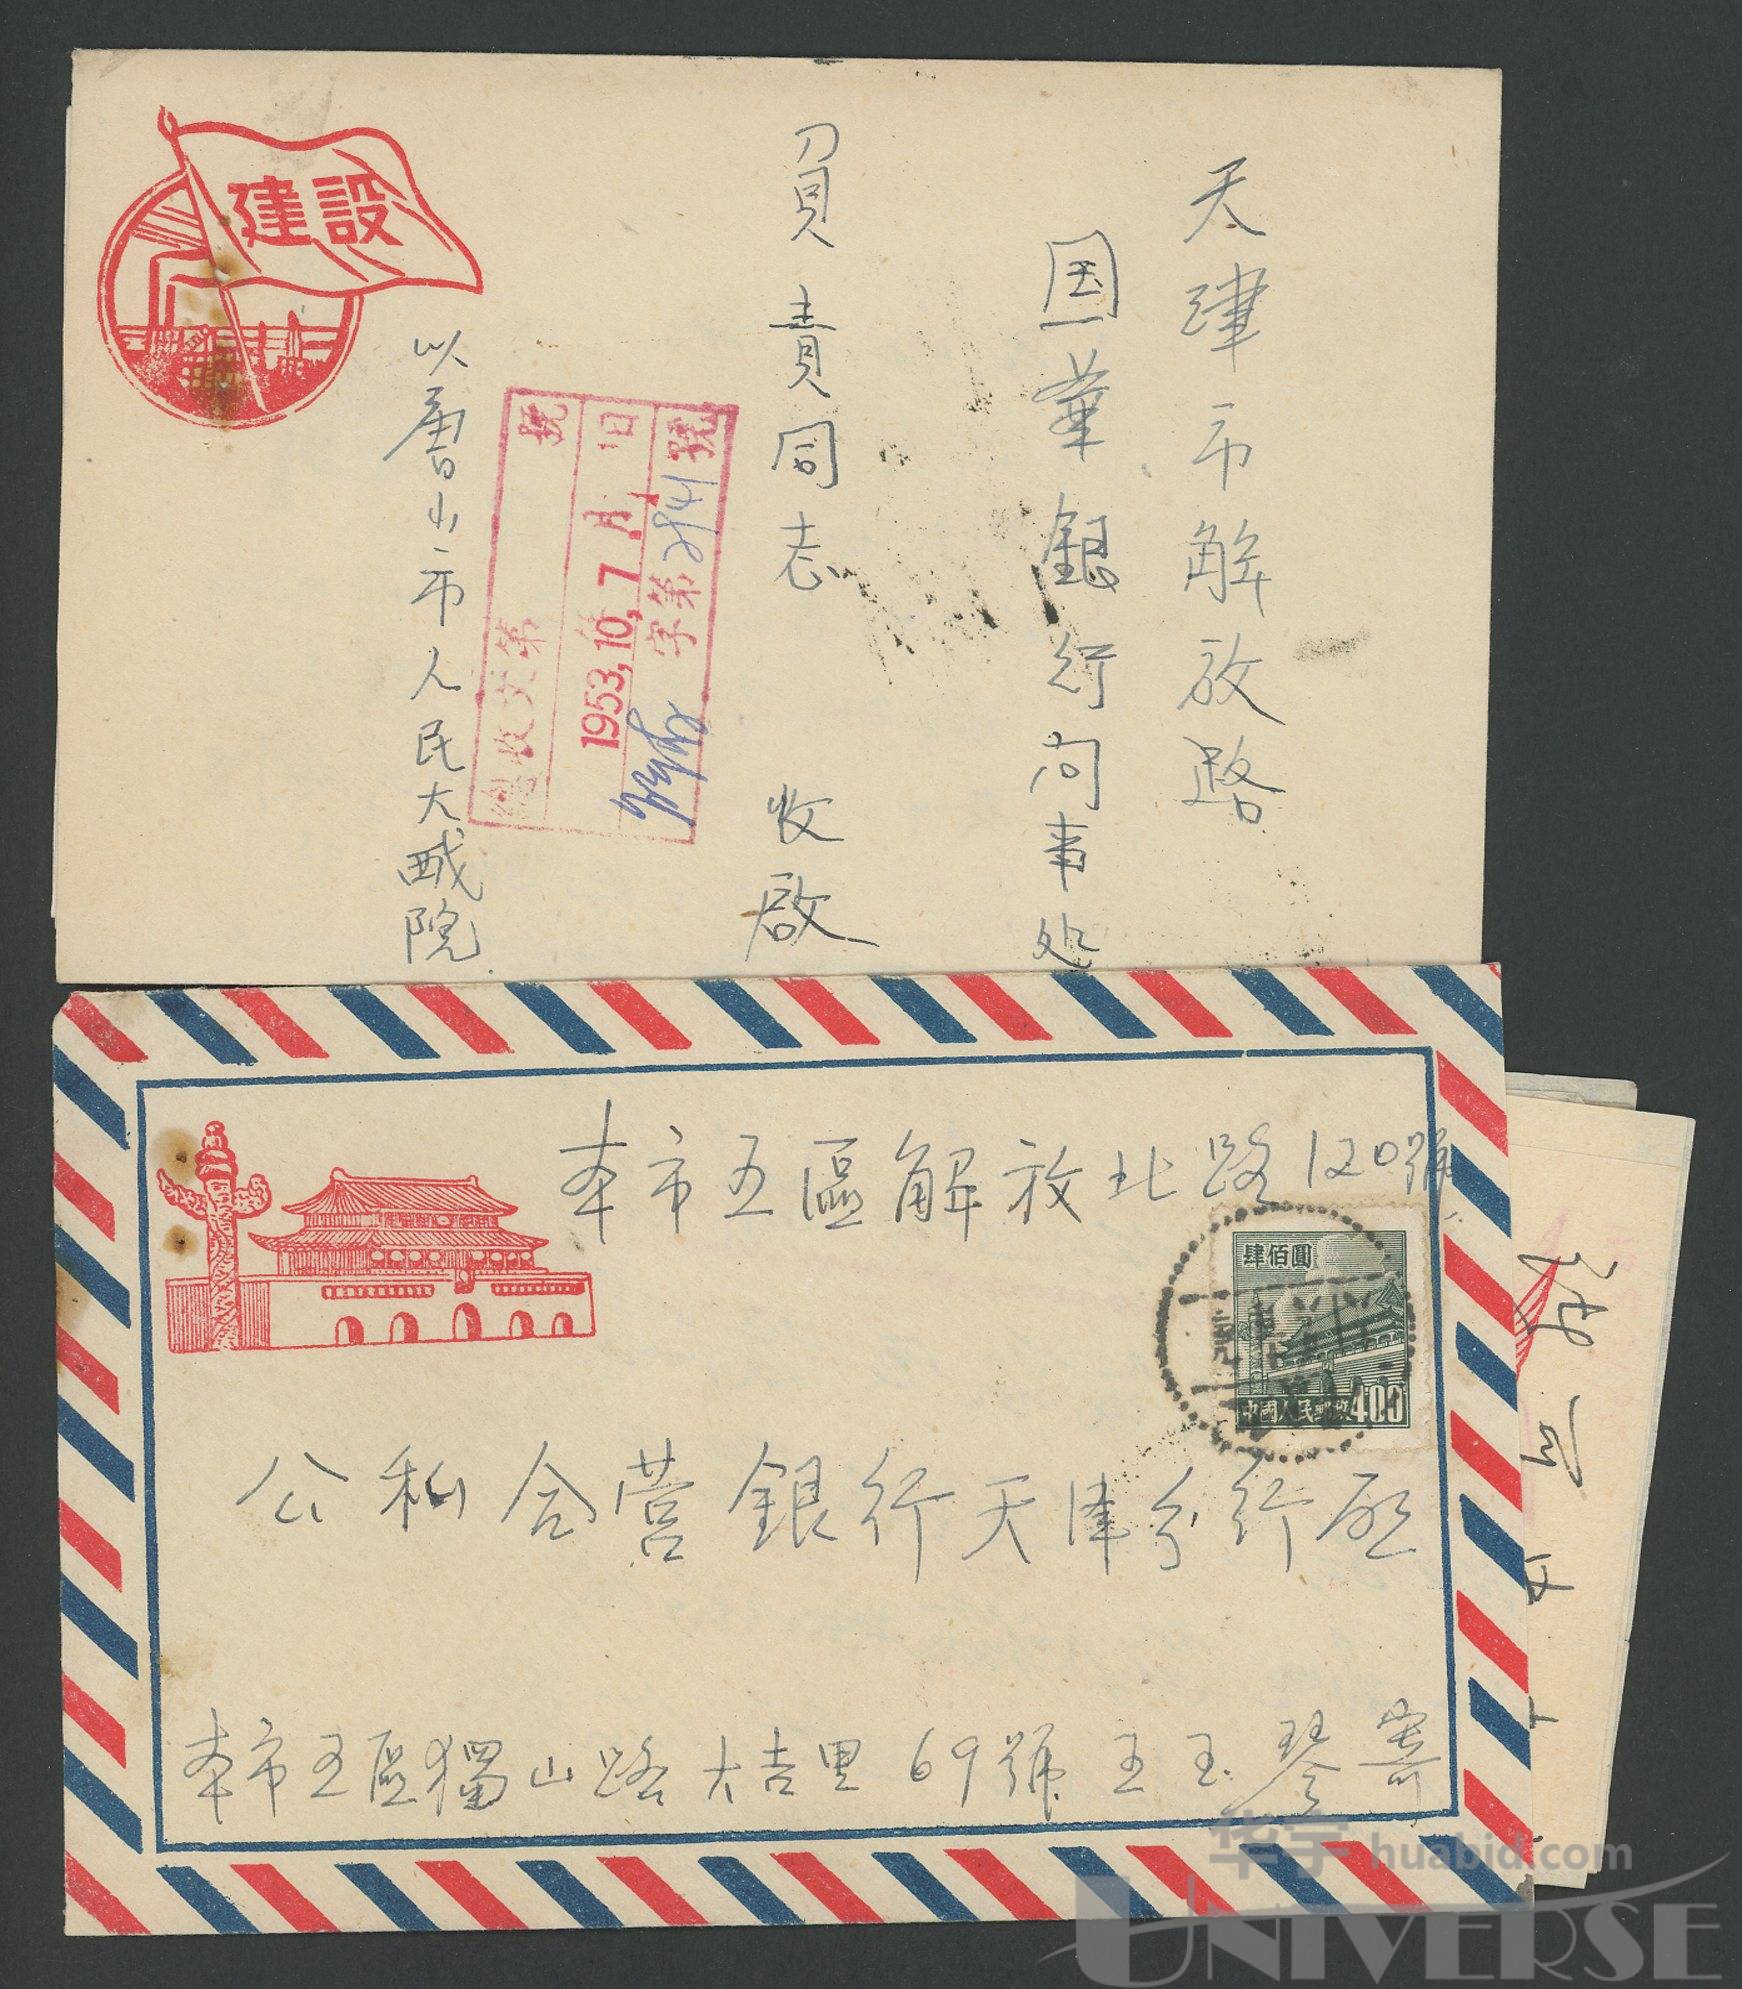 建設
天津市解放路
国華銀行问事处
負責同志 收啟
以唐山市人民大戲院
總收文第 號
1953.10.7 月 日
字第 號
本市五區解放北路120號
肆佰圓
中國人民郵政400
公私合營銀行天津分行啟
本市五區獨山路大吉里69號王玉琴寄
华宇 huabid.com
UNIVERSE